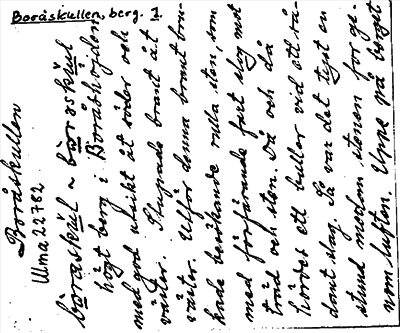 Boråskullen, berg. 1.
Boråskullen
Ulma 22782
båraskŭl ~ bårosskŭl
högt berg i Boråshöjden
med god utsikt åt söder och
väster. Stupade brant åt
väster. Utför denna brant bru-
kade besökande rulla sten, som
med förfärande fart slog mot
träd och sten. Då och då
hördes ett buller vid ett så-
dant slag. Så var det tyst en
stund medan stenen for ge-
nom luften. Uppe på berget